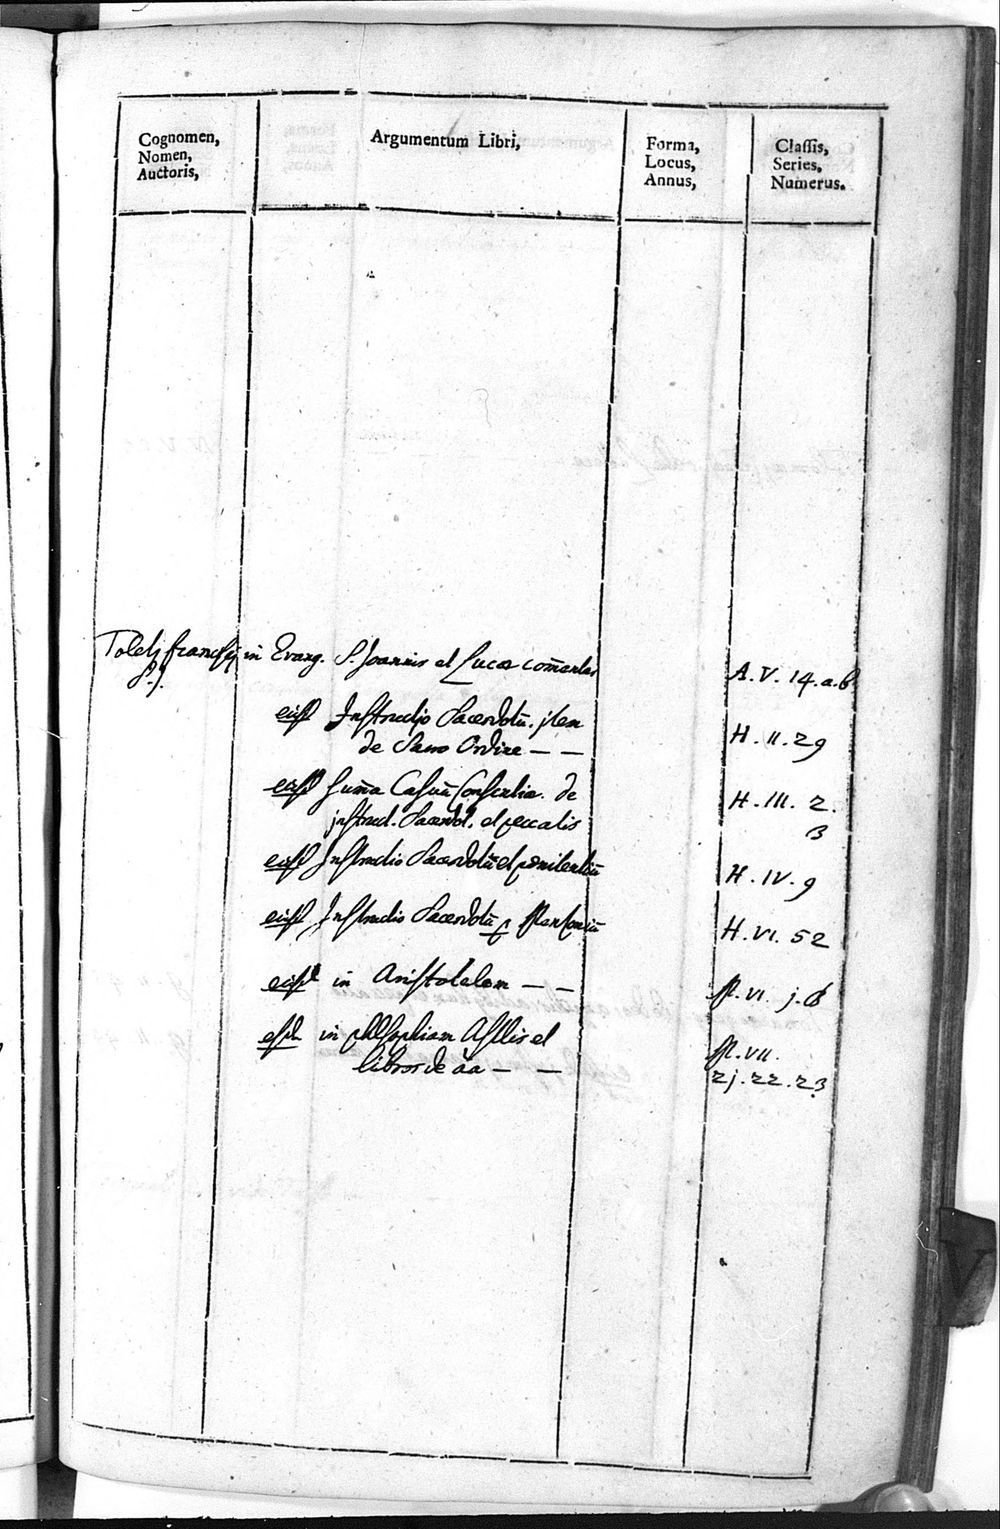 Cognomen,
Nomen,
Auctoris,
Argumentum Libri,
Forma,
Locus,
Annus,
Classis,
Series,
Numerus.
Toletj Francisj in Evang. S. Joannis et Lucae com̄entar A. V. 14. a. b.
S. J.
eiusd Instructjo Sacerdotū. jtem H. II. 29
de Sacro Ordine — —
eiusd Sum̄a Casuū Conscientiae. de H. III. 2.
jnstruct. Sacerdot. et peccatis 3
eiusd Instructio Sacerdotū et poenitentiū H. IV. 9
eiusd Instructio Sacerdotū H. VI. 52
eiusd in Aristotelem — — VI. j.
eiusd in phlsophiam Astlis et VII.
libros de āa — — 2j. 22. 23